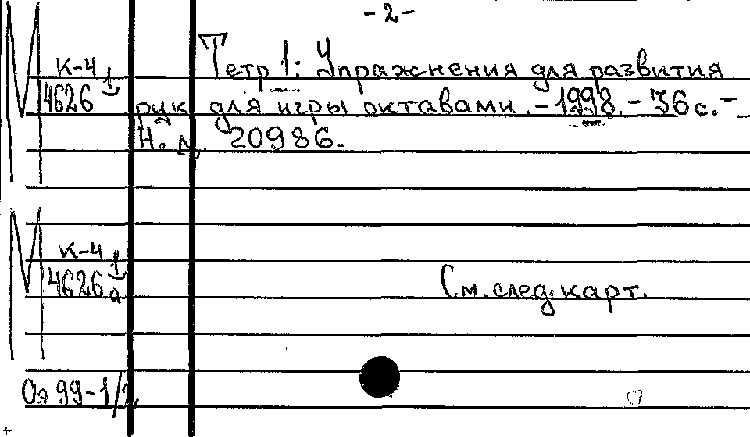 -2-
М К-4 1 Тетр 1: Упражнения для развития
4626 рук для игры октавами. - 1998. - 36 с. -
Н. д. 20986.
М К-4 1
4626а См. след. карт.
Оэ 99-1/2